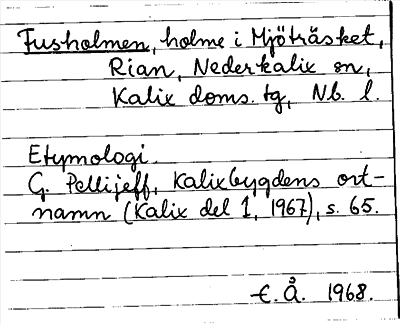 Fusholmen, holme i Mjöträsket,
Rian, Nederkalix sn,
Kalix doms. tg, Nb. l.
Etymologi.
G. Pellijeff, Kalixbygdens ort-
namn (Kalix del 1, 1967), s. 65.
E. Å. 1968.